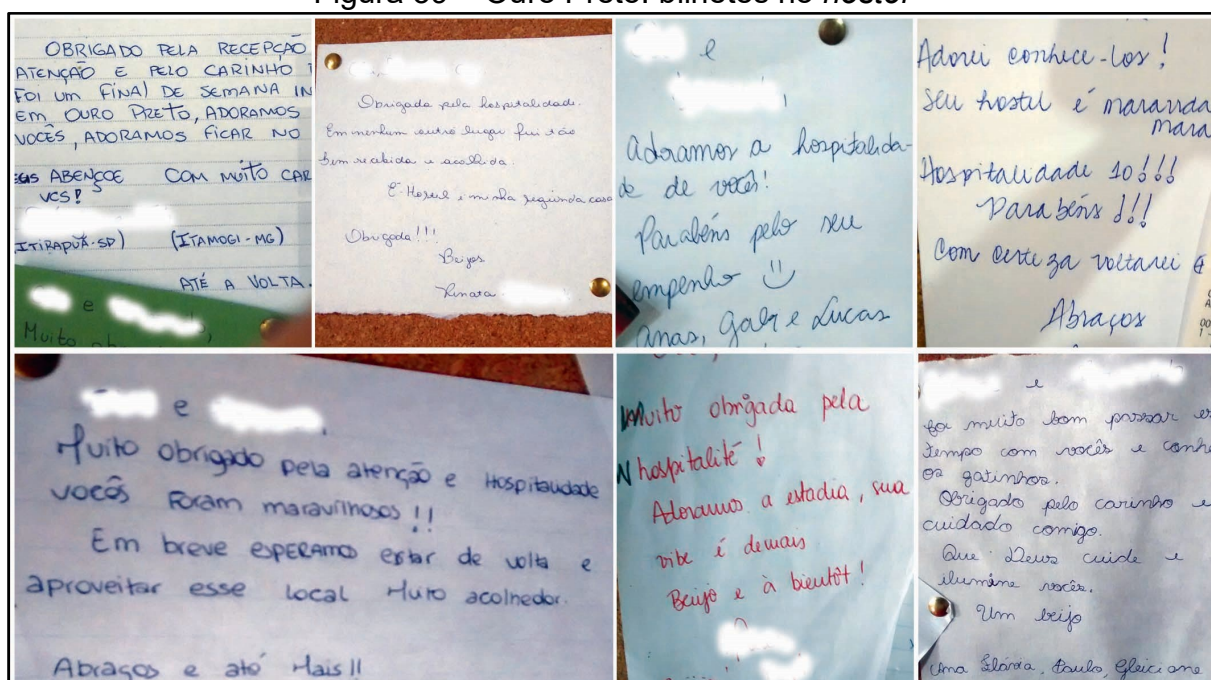 Figura 69 – Ouro Preto: bilhetes no hostel
OBRIGADO PELA RECEPÇÃO
ATENÇÃO E PELO CARINHO
FOI UM FINAL DE SEMANA IN
EM OURO PRETO, ADORAMOS
VOCÊS, ADORAMOS FICAR NO
ABENÇOE COM MUITO CAR
VCS!
ITIRAPUÃ-SP) (ITAMOGI-MG)
ATÉ A VOLTA.
e
Muito
Obrigada pela hospitalidade.
Em nenhum outro lugar fui tão
bem recebida e acolhida.
E. Hostel é minha segunda casa
Obrigada!!!
Beijos
Renata
e
adoramos a hospitalida-
de de vocês!
Parabéns pelo seu
empenho
Anas, Gabr e Lucas
Adorei conhece-los!
Seu hostel é
mara
Hospitalidade 10!!!
Parabéns!!!
Com certeza voltarei
Abraços
e
Muito obrigado pela atenção e Hospitalidade
vocês Foram maravilhosos!!
Em breve ESPERAMO estar de volta e
aproveitar esse local Muito acolhedor.
Abraços e até Mais!!
Muito obrigada pela
hospitalité!
Adoramos a estadia, sua
vibe é demais
Beijo e à bientôt!
e
foi muito bom passar es
tempo com vocês e conhe
os gatinhos.
Obrigado pelo carinho e
cuidado comigo.
Que Deus cuide e
ilumine vocês.
Um beijo
Ana Flávia, Paulo, Gleiciane